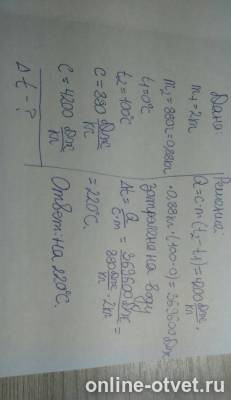 Дано:
m₁=2кг
m₂=880г=0,88кг
t₁=0°C
t₂=100°C
C=880 Дж/кг
C=4200 Дж/кг
Δt-?
Решение:
Q=c·m·(t₂-t₁)=4200 Дж/кг·
·0,88кг·(100-0)=369600Дж
затрачена на воду
Δt=Q/c·m=369600Дж/880 Дж/кг·2кг=
=220°C.
Ответ: на 220°C.
online-otvet.ru